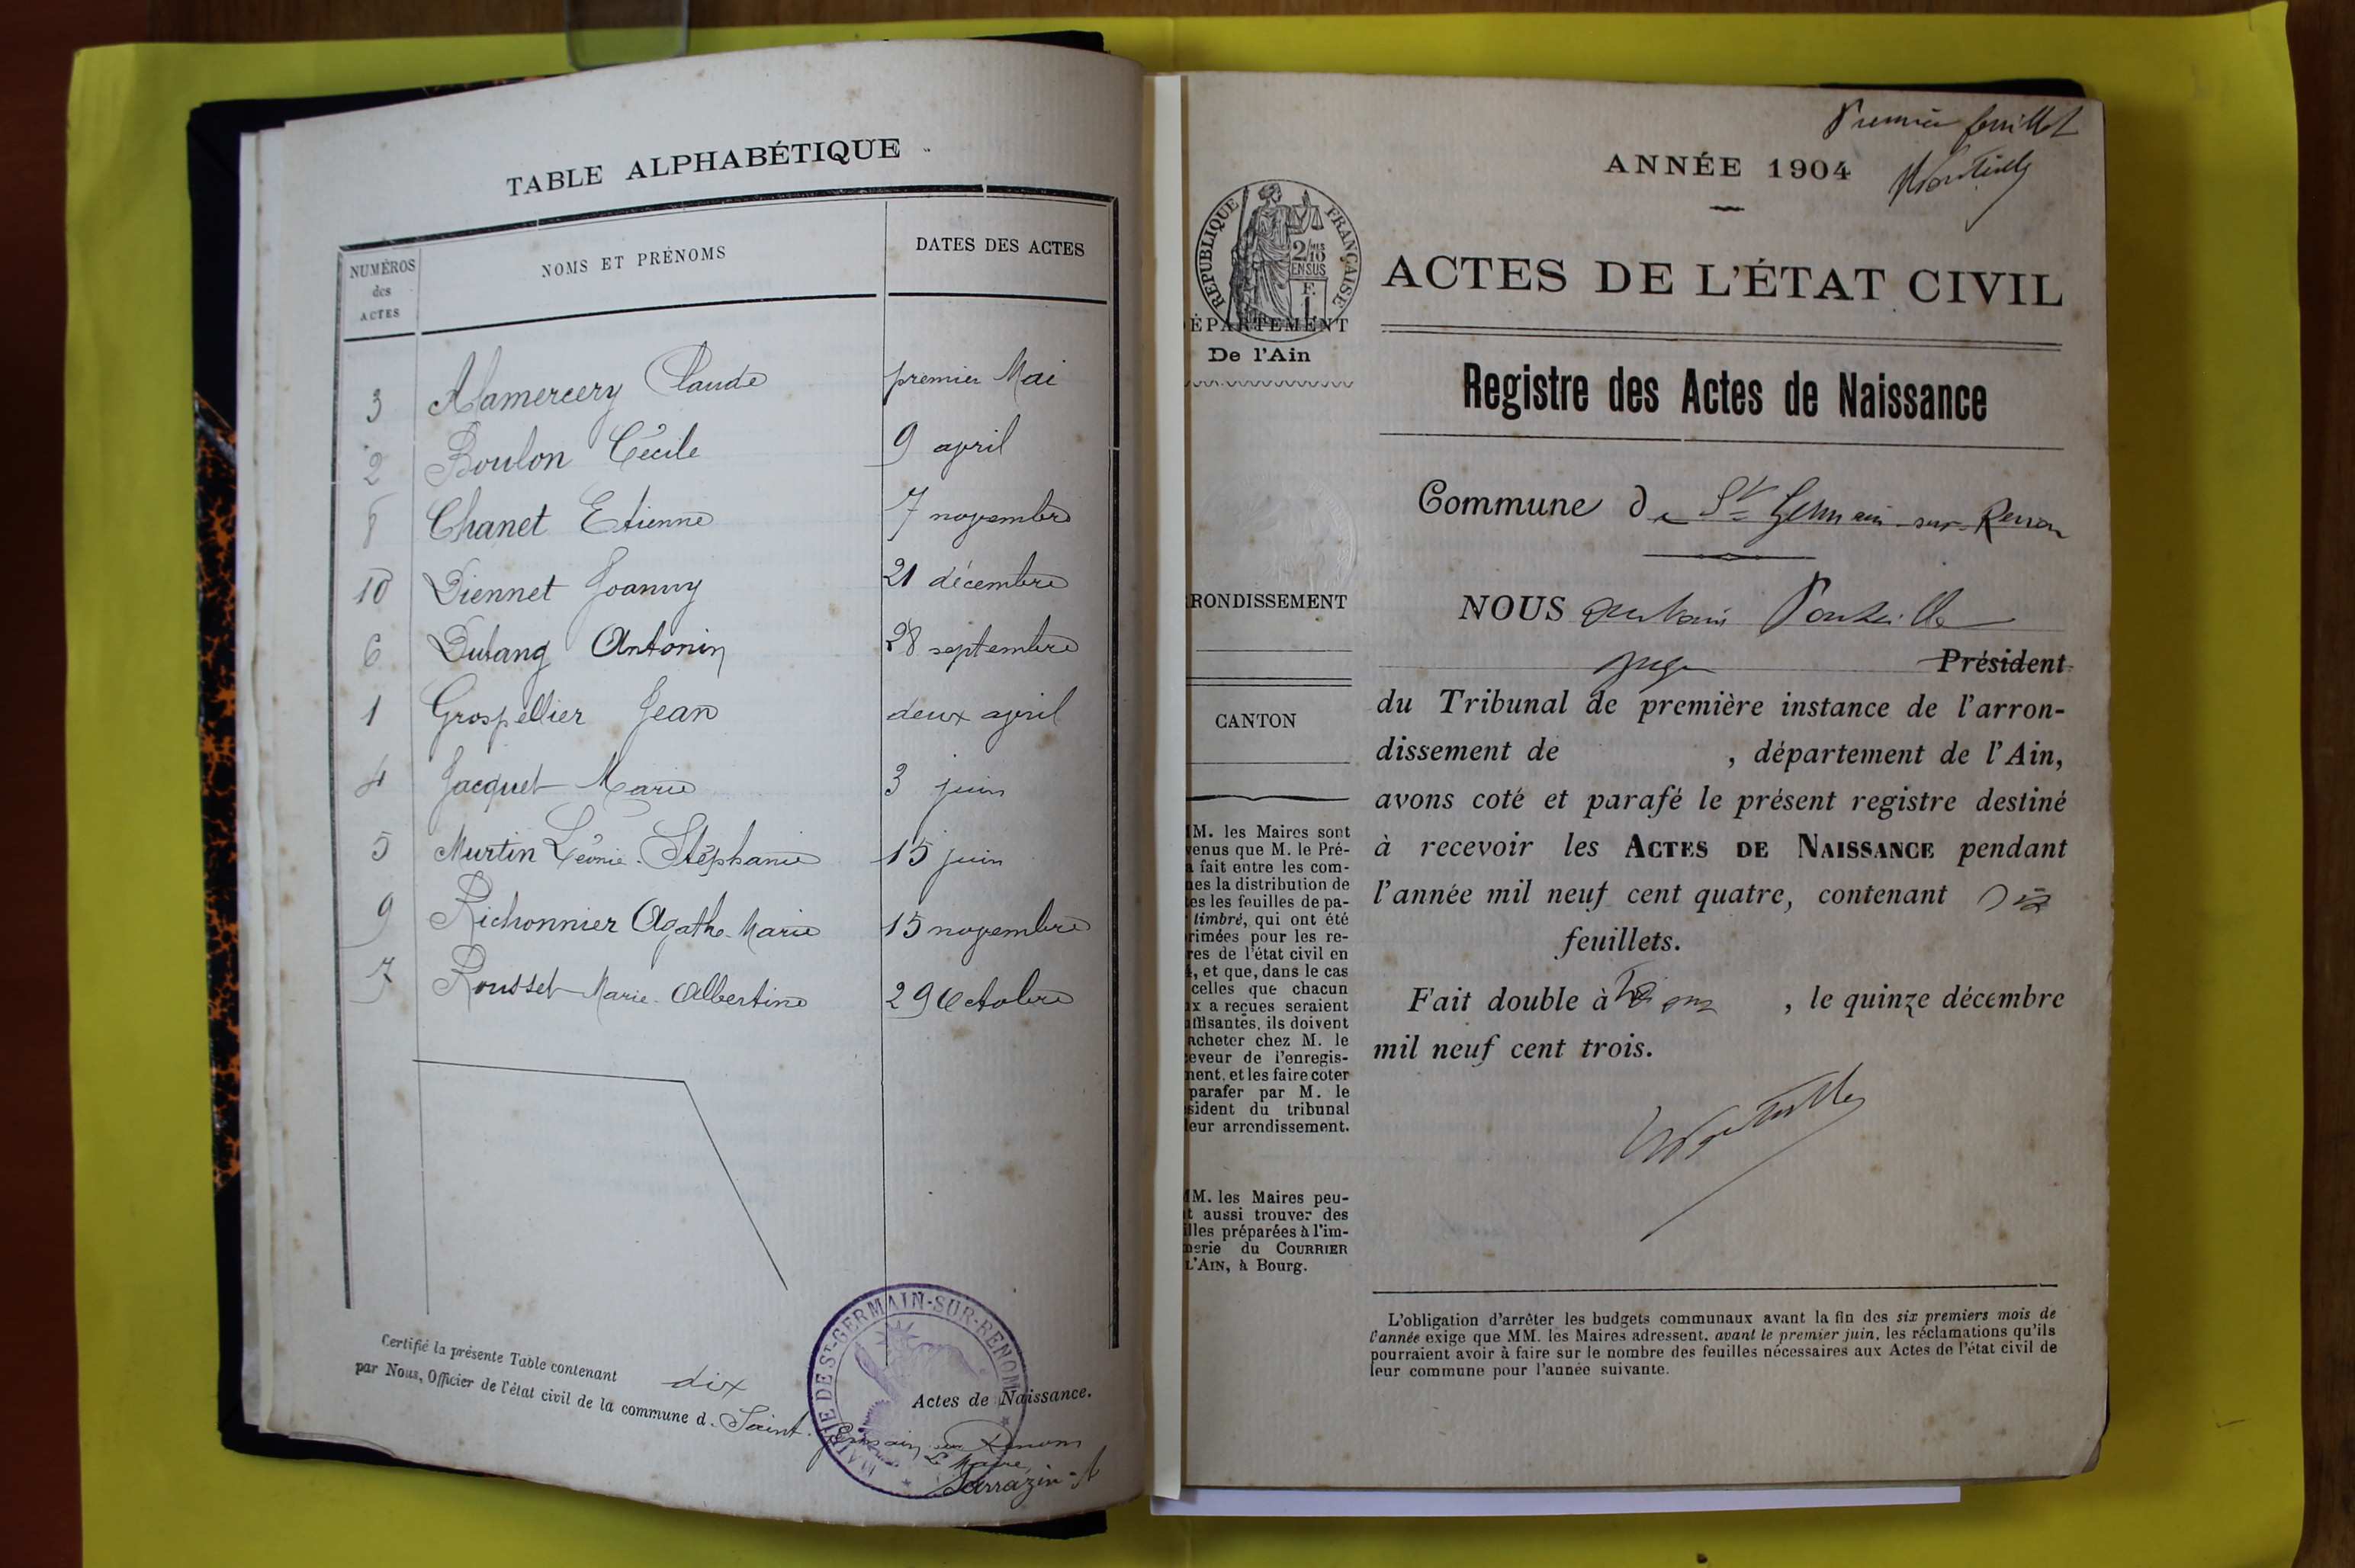 TABLE ALPHABÉTIQUE
NUMÉROS des ACTES
NOMS ET PRÉNOMS
DATES DES ACTES
3 Alamercery Claude premier Mai
2 Boulon Cécile 9 april
8 Chanet Etienne 7 novembre
10 Diennet Joanny 21 décembre
6 Dutang Antonin 28 septembre
1 Grospellier Jean deux april
4 Jacquet Marie 3 juin
5 Murtin Léonie-Stéphanie 15 juin
9 Richonnier Agathe-Marie 15 novembre
7 Rousset Marie-Albertine 29 Octobre
Certifié la présente Table contenant dix Actes de Naissance.
par Nous, Officier de l'état civil de la commune d. Saint-
Germain sur Renom
Le Maire,
Sarrazin-A
MAIRIE DE ST-GERMAIN-SUR-RENOM
Premier feuillet
ANNÉE 1904
RÉPUBLIQUE FRANÇAISE
2/10 EN SUS
F. 1
ACTES DE L'ÉTAT CIVIL
ÉPARTEMENT
De l'Ain
Registre des Actes de Naissance
Commune de St Germain-sur-Renon
RONDISSEMENT
NOUS Ponteille
juge Président
du Tribunal de première instance de l'arron-
dissement de , département de l'Ain,
avons coté et parafé le présent registre destiné
à recevoir les ACTES DE NAISSANCE pendant
l'année mil neuf cent quatre, contenant dix
feuillets.
Fait double à , le quinze décembre
mil neuf cent trois.
CANTON
M. les Maires sont
venus que M. le Pré-
a fait entre les com-
nes la distribution de
es les feuilles de pa-
timbré, qui ont été
rimées pour les re-
res de l'état civil en
, et que, dans le cas
celles que chacun
x a reçues seraient
ffisantes, ils doivent
acheter chez M. le
eveur de l'enregis-
ment, et les faire coter
parafer par M. le
sident du tribunal
leur arrondissement.
MM. les Maires peu-
t aussi trouver des
illes préparées à l'im-
merie du COURRIER
L'AIN, à Bourg.
L'obligation d'arrêter les budgets communaux avant la fin des six premiers mois de
l'année exige que MM. les Maires adressent, avant le premier juin, les réclamations qu'ils
pourraient avoir à faire sur le nombre des feuilles nécessaires aux Actes de l'état civil de
leur commune pour l'année suivante.